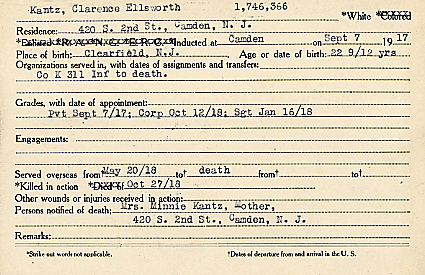 Kantz, Clarence Ellsworth 1,746,366
*White *Colored
Residence: 420 S. 2nd St., Camden, N. J.
*Enlisted R. A. N. G. E. R. C. *Inducted at Camden on Sept 7 1917
Place of birth: Clearfield, N.J. Age or date of birth: 22 9/12 yrs
Organizations served in, with dates of assignments and transfers:
Co K 311 Inf to death.
Grades, with date of appointment:
Pvt Sept 7/17; Corp Oct 12/18; Sgt Jan 16/18
Engagements:
Served overseas from May 20/18 to† death from† to†
*Killed in action *Died of Oct 27/18
Other wounds or injuries received in action:
Persons notified of death: Mrs. Minnie Kantz, Mother,
420 S. 2nd St., Camden, N. J.
Remarks:
*Strike out words not applicable. †Dates of departure from and arrival in the U. S.